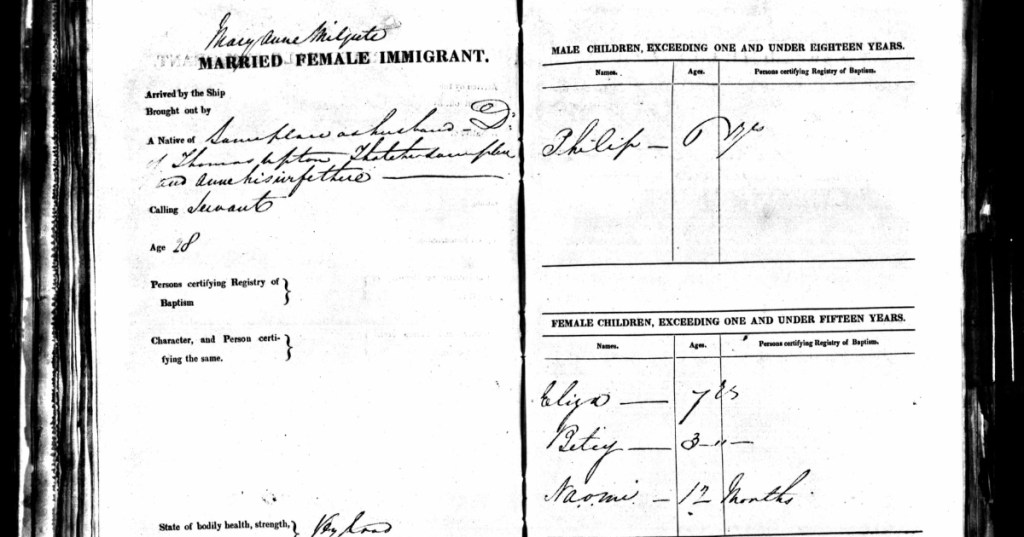 Mary Anne Milgate
MARRIED FEMALE IMMIGRANT.
Arrived by the Ship
Brought out by
A Native of Same place as husband – D:
of Thomas Upton, Thatcher same place
and Anne his wife there
Calling Servant
Age 28
Persons certifying Registry of
Baptism
Character, and Person certi-
fying the same.
State of bodily health, strength,
Very Good
MALE CHILDREN, EXCEEDING ONE AND UNDER EIGHTEEN YEARS.
Names. Ages. Persons certifying Registry of Baptism.
Philip –
FEMALE CHILDREN, EXCEEDING ONE AND UNDER FIFTEEN YEARS.
Names. Ages. Persons certifying Registry of Baptism.
Eliza — 7 yrs
Betsy — 3 – " –
Naomi – Months